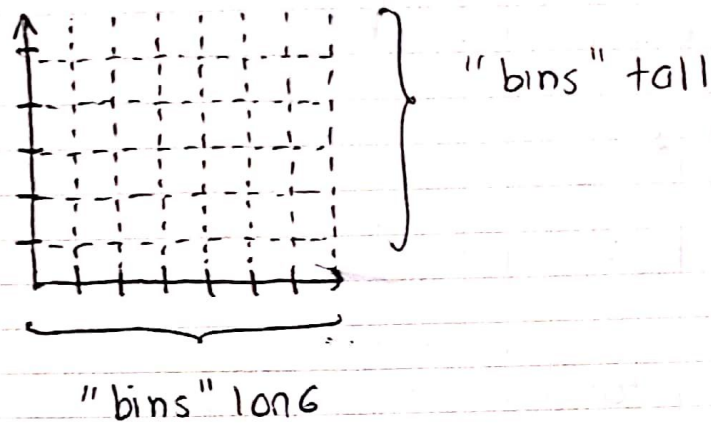 "bins" tall
"bins" long